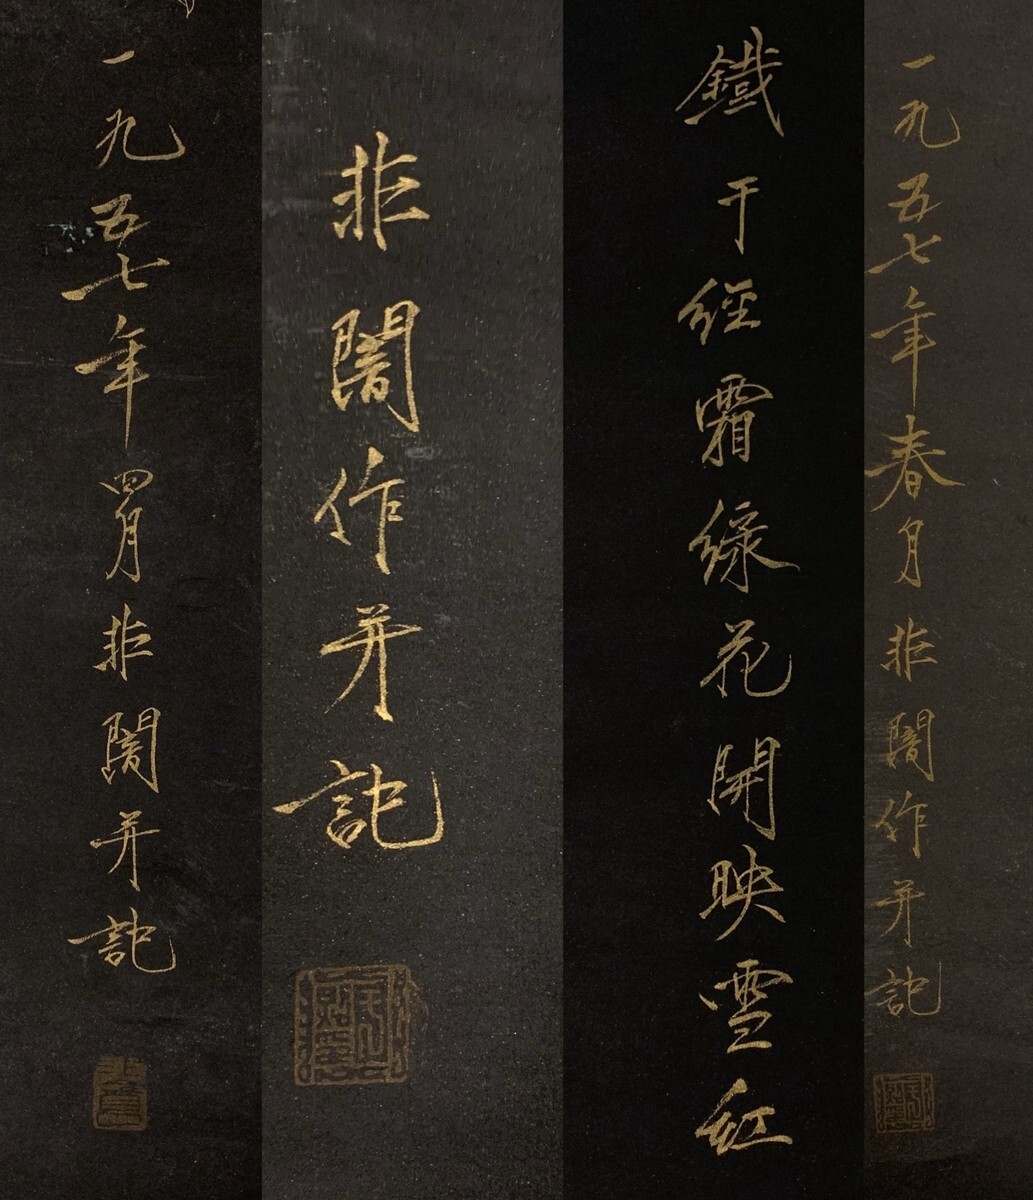 一九五七年春月非闇作并記
鐵干經霜緑花開映雪紅
非闇作并記
一九五七年四月非闇并記